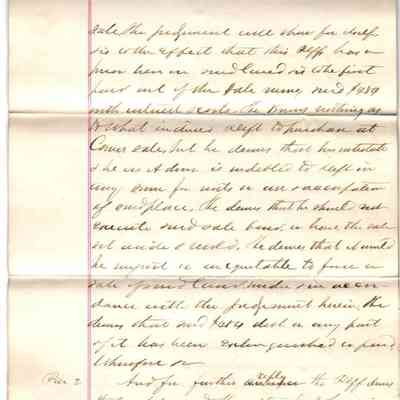 sale, the judgment will show for itself
is to the effect that this Plff has a
prior lien on said land is to be first
paid out of the sale money said $489
with interest & costs. He knows nothing as
to what induced deft to purchase at
Comrs sale, but he denies that his intestate
& he as Admr is indebted to deft in
any sum for rents or in occupation
of said place. He denies that he should not
execute said sale bond, or have the sale
set aside & resold. He denies that it would
be unjust or inequitable to force a
sale of said land under in accor
dance with the judgment herein. He
denies that said $489 debt or any part
of it has been extinguished or paid.
Wherefore &c
Par 2 And for further reply the Plff denies